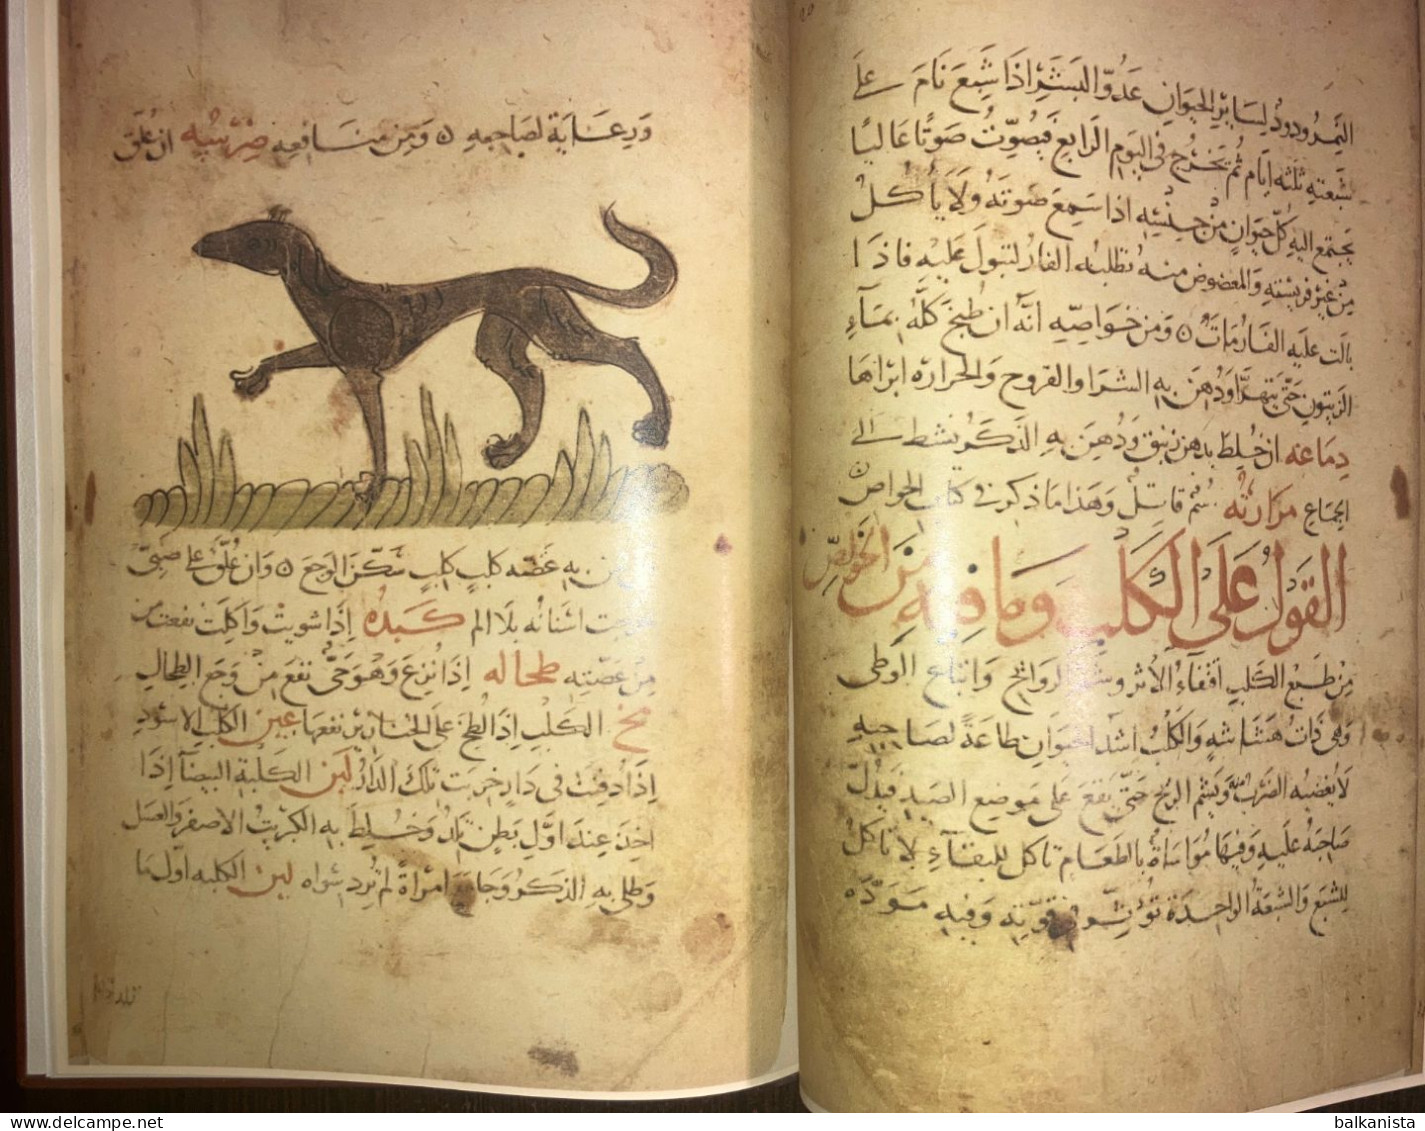 النمر ودود لسائر الحيوان عدوّ البشر اذا شبع نام على
شبعته ثلثه ايام ثم يخرج في اليوم الرابع فيصوّت صوتًا عاليًا
يجتمع اليه كل حيوان من جنسه اذا سمع صوته ولا يأكل
من غير فريسته والمعضوض منه يطلبه الفار لتبول عليه فاذا
بالت عليه الفار مات ۞ ومن خواصّه انّه ان طبخ كله بمآء
الزيتون حتى يتهرّا ودهن به الشرا والقروح والحراره ابراها
دماغه ان خلط بدهن زنبق ودهن به الذكر نشط الى
الجماع مرارته سم قاتل وهذا ما ذكر في كتاب الخواص ۞
القول على الكلب وما فيه من الخواص
من طبع الكلب اقتفاء الأثر وشم الروائح واتباع
وهى ذات هشاشه والكلب اشد الحيوان طاعةً لصاحبه
لا يغضبه الضرب منه ويشم الريح حتى يقع على موضع الصيد فيدلّ
صاحبه عليه وفيها مواساة بالطعام تاكل للبقآء لا تاكل
للشبع والشبعة الواحدة قوته وفيه مودّه
ورعاية لصاحبه ۞ ومن منافعه ضرسه ان علق
من به عضّه كلبٍ كلبٍ سكّن الوجع ۞ وان علّق على صبىّ
اسنانه بلا الم كبده اذا شويت واكلت نفعت من
من عضّته طحاله اذا نزع وهو حىّ نفع من وجع الطحال
مخ الكلب اذا لطخ على الخنازير نفعها عين الكلب الاسود
اذا دفنت فى دارٍ خربت تلك الدار لبن الكلبة البيضآ اذا
اخذ عند اوّل بطن تلد وخلط به الكبريت الاصفر والعسل
وطلى به الذكر وجامع امراةً لم ترد سواه لبن الكلبه اول ما
balkanista